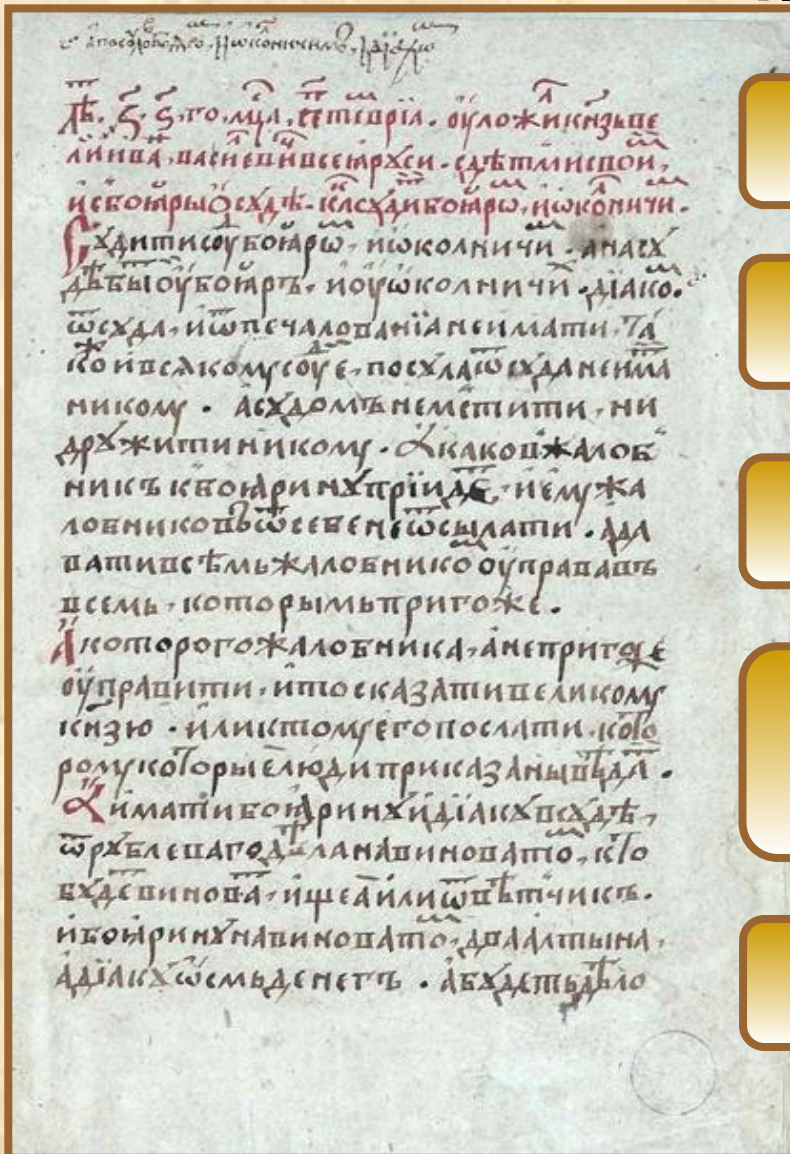 а посуловъ бояро, и ѡколничимъ, и дїакѡ
лѣ ҂ѕ ѕ го мцⷭа септевріа ꙋложи кнѧзь ве
ликїи ива васиевич всеа рꙋси с дѣтми свои
и с бояры ѡ сꙋдѣ какъ сꙋди боярѡ и ѡколничи
Сꙋдити сꙋ боярѡ и ѡколничи а на сꙋ
дѣ быти ꙋ бояръ и ꙋ ѡколничи дїако
ѿ сꙋда и ѿ печалованїа не имати та
ко и всякомꙋ сꙋе посꙋла ѿ сꙋда не има
никомꙋ а сꙋдомъ не мстити ни
дрꙋжити никомꙋ А каков жалоб
никъ к бояринꙋ прїидеⷮ и емꙋ жа
лобниковъ ѿ себе не ѿсылати а да
вати всѣмь жалобнико ꙋправа въ
всемь которымь пригоже
А которого жалобника а не пригоже
ꙋправити и то сказати великомꙋ
кнѧзю или к томꙋ его послати кото
ромꙋ которые люди приказаны вѣдаⷮ
А имати бояринꙋ и дїакꙋ в сꙋдѣ
ѿ рꙋблеваго дѣла на виновато кто
бꙋдеⷮ виноваⷮ ищеа или ѿвѣтчикъ
и бояринꙋ на виновато два алтына
а дїакꙋ ѡсмь денегъ а бꙋдеть дѣло